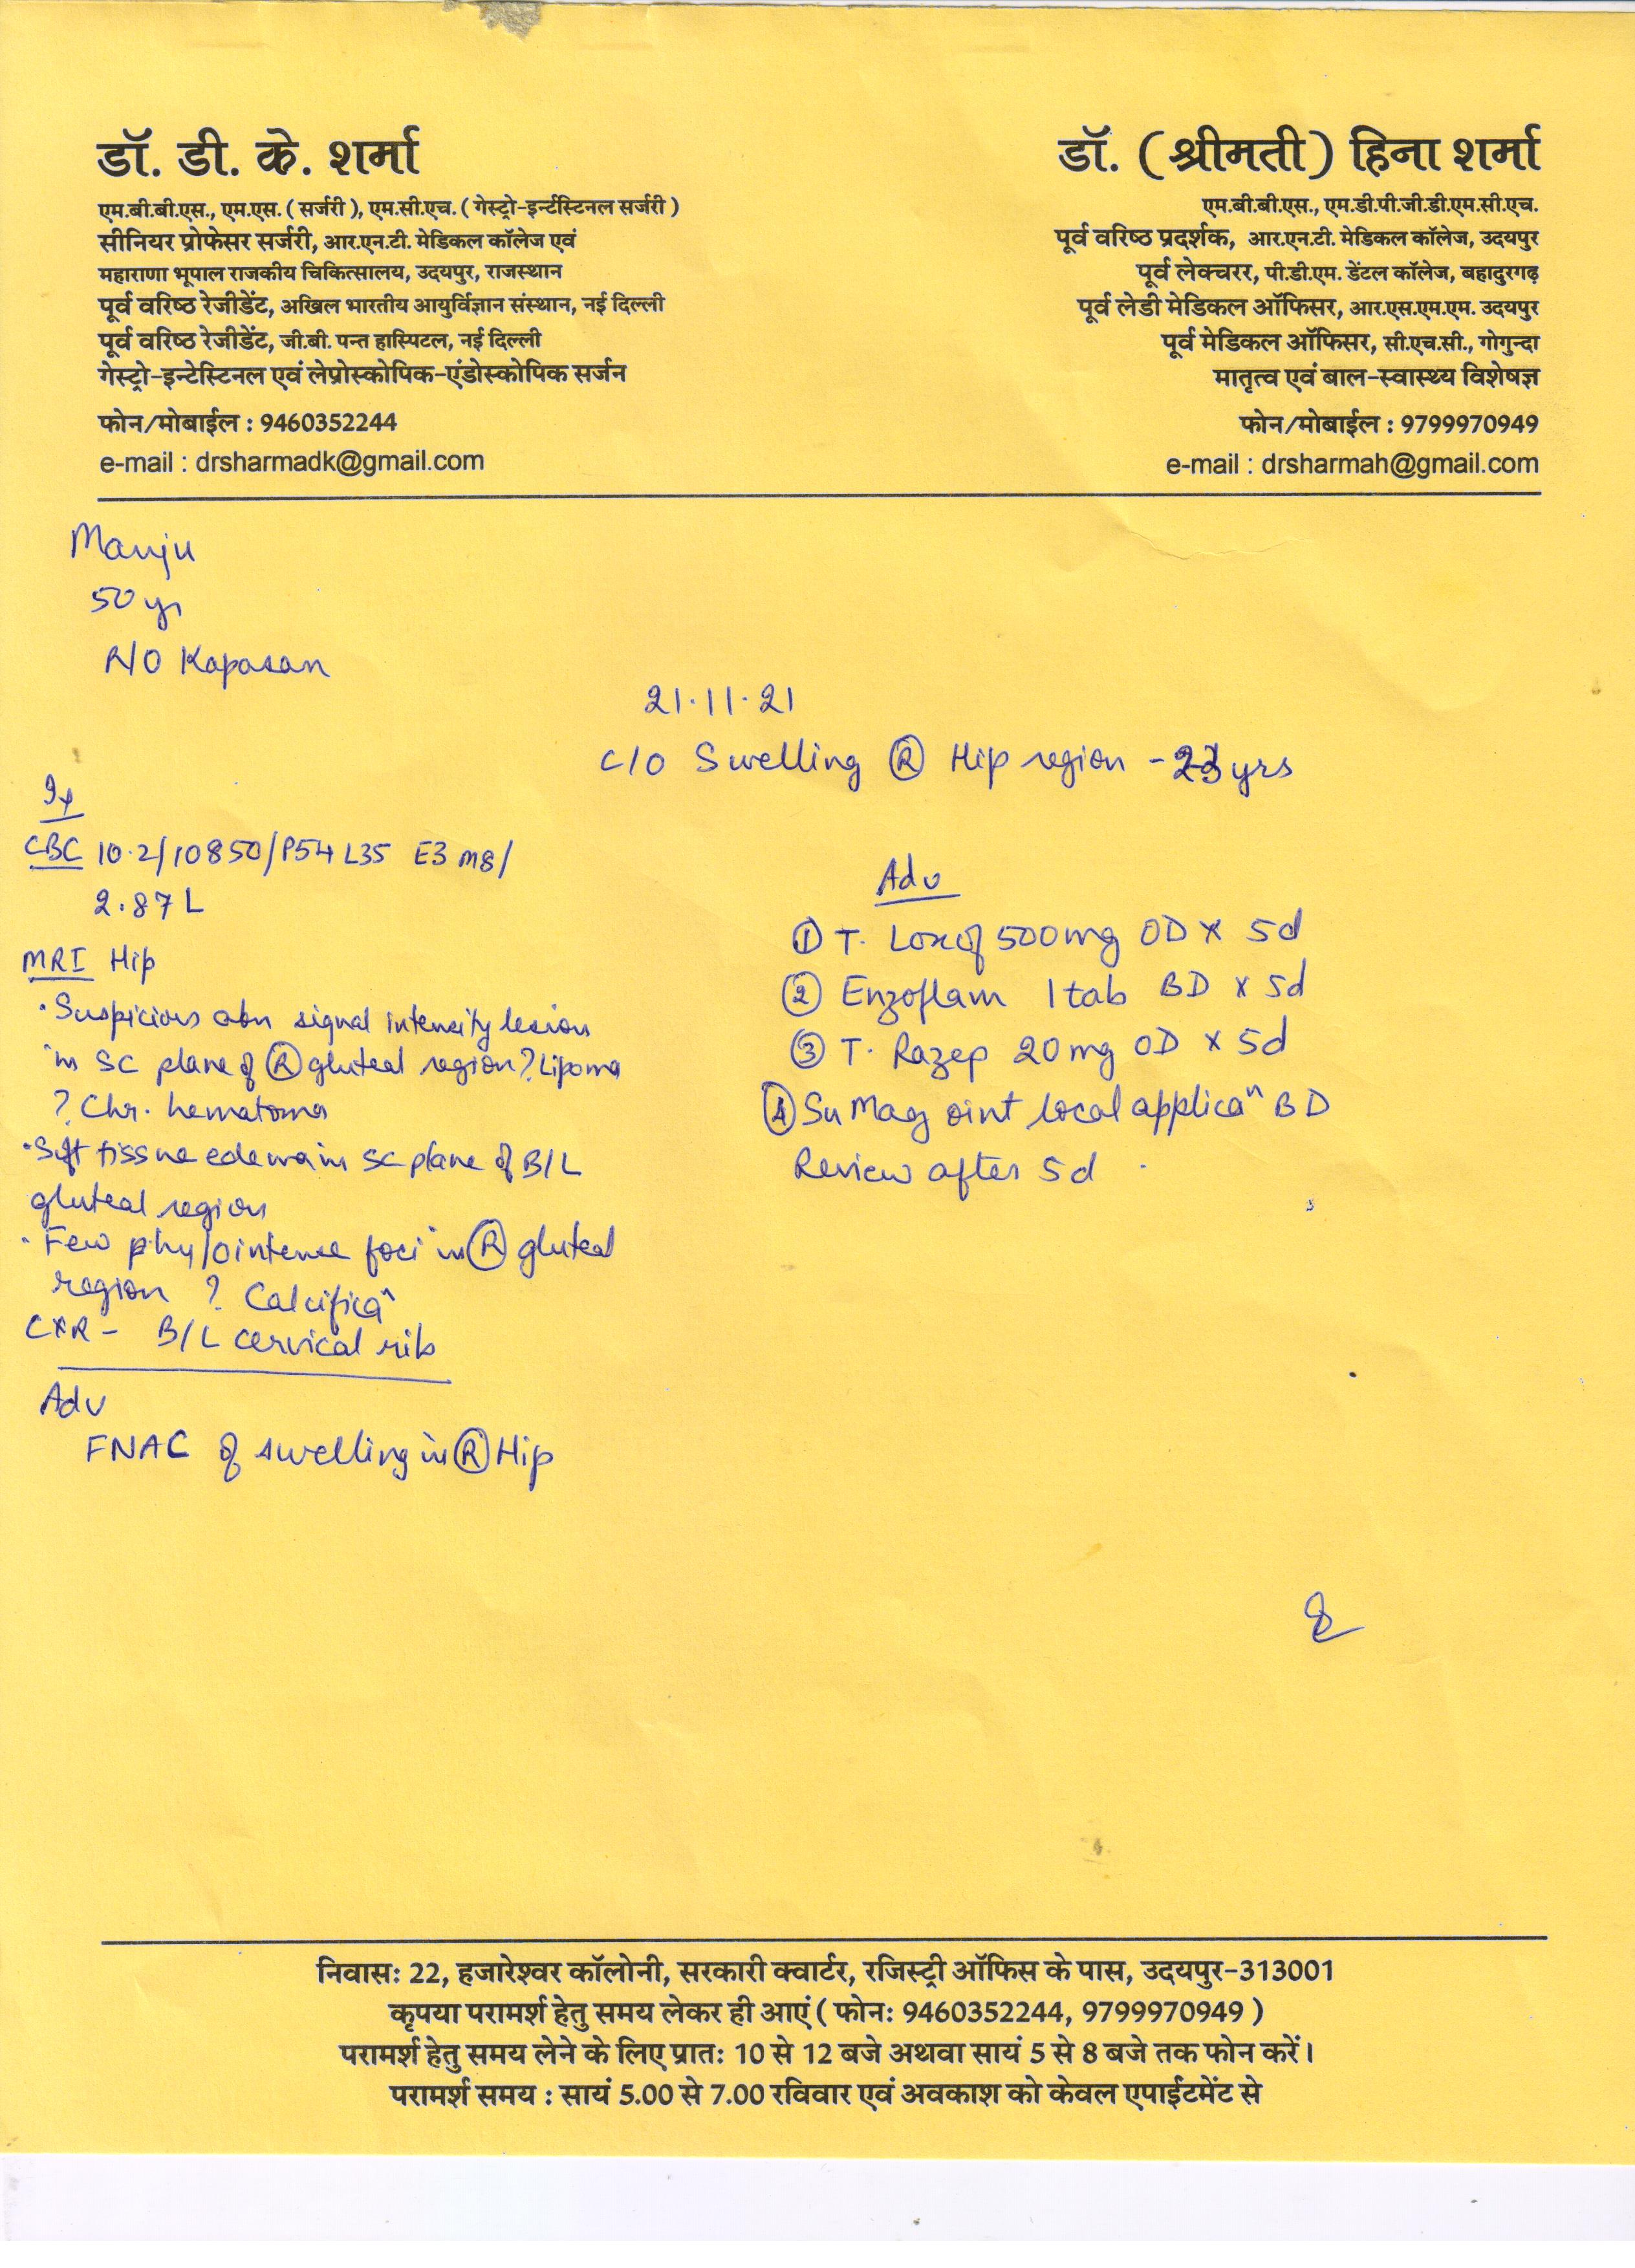 डॉ. डी. के. शर्मा
एम.बी.बी.एस., एम.एस. ( सर्जरी ), एम.सी.एच. ( गेस्ट्रो-इन्टेस्टिनल सर्जरी )
सीनियर प्रोफेसर सर्जरी, आर.एन.टी. मेडिकल कॉलेज एवं
महाराणा भूपाल राजकीय चिकित्सालय, उदयपुर, राजस्थान
पूर्व वरिष्ठ रेजीडेंट, अखिल भारतीय आयुर्विज्ञान संस्थान, नई दिल्ली
पूर्व वरिष्ठ रेजीडेंट, जी.बी. पन्त हास्पिटल, नई दिल्ली
गेस्ट्रो-इन्टेस्टिनल एवं लेप्रोस्कोपिक-एंडोस्कोपिक सर्जन
फोन/मोबाईल : 9460352244
e-mail : drsharmadk@gmail.com
डॉ. ( श्रीमती ) हिना शर्मा
एम.बी.बी.एस., एम.डी.पी.जी.डी.एम.सी.एच.
पूर्व वरिष्ठ प्रदर्शक, आर.एन.टी. मेडिकल कॉलेज, उदयपुर
पूर्व लेक्चरर, पी.डी.एम. डेंटल कॉलेज, बहादुरगढ़
पूर्व लेडी मेडिकल ऑफिसर, आर.एस.एम.एम. उदयपुर
पूर्व मेडिकल ऑफिसर, सी.एच.सी., गोगुन्दा
मातृत्व एवं बाल-स्वास्थ्य विशेषज्ञ
फोन/मोबाईल : 9799970949
e-mail : drsharmah@gmail.com
Manju
50 yr
R/O Kapasan
21.11.21
C/O Swelling Ⓡ Hip region - yrs
Ix
CBC 10.2/10850/P54 L35 E3 M8/
2.87 L
MRI Hip
• Suspicious abn signal intensity lesion
in SC plane of Ⓡ gluteal region ? Lipoma
? Chr. hematoma
• Soft tissue edema in SC plane of B/L
gluteal region
• Few foci in Ⓡ gluteal
region ? Calcificaⁿ
CXR - B/L cervical rib
Adv
FNAC of swelling in Ⓡ Hip
Adv
① T. Loxof 500 mg OD x 5d
② Enzoflam 1 tab BD x 5d
③ T. Razep 20 mg OD x 5d
④ Su Mag oint local applicaⁿ BD
Review after 5d
निवास: 22, हजारेश्वर कॉलोनी, सरकारी क्वार्टर, रजिस्ट्री ऑफिस के पास, उदयपुर-313001
कृपया परामर्श हेतु समय लेकर ही आएं ( फोन: 9460352244, 9799970949 )
परामर्श हेतु समय लेने के लिए प्रात: 10 से 12 बजे अथवा सायं 5 से 8 बजे तक फोन करें।
परामर्श समय : सायं 5.00 से 7.00 रविवार एवं अवकाश को केवल एपाईंटमेंट से